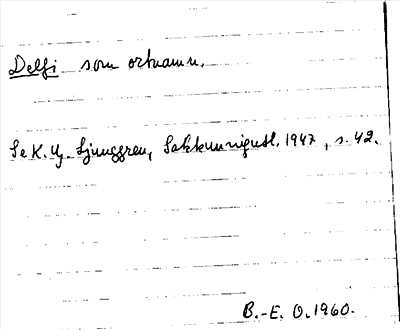 Delfi som ortnamn.
Se K. G. Ljunggren, Sakkunnigutl. 1947, s. 42.
B.-E. O. 1960.